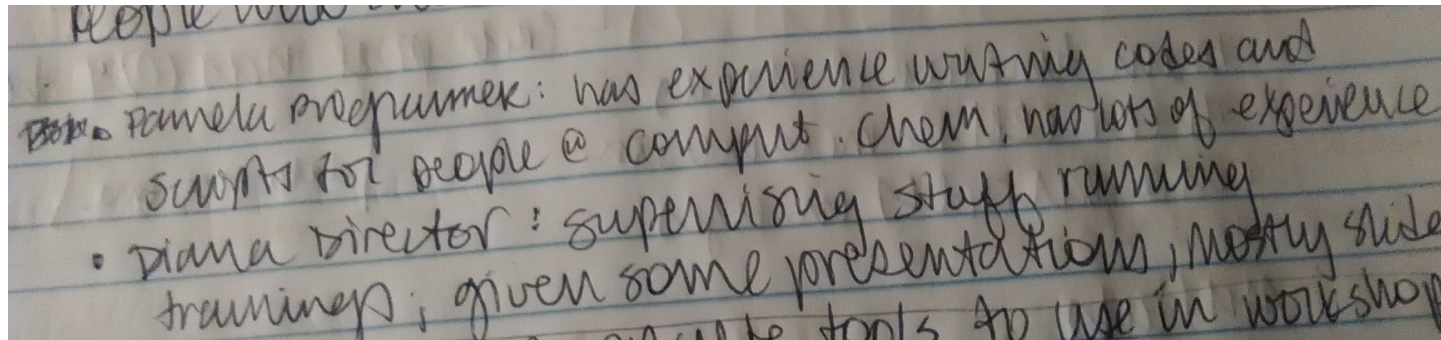 People
• Pamela Programmer: has experience writing codes and
scripts for people @ comput. chem. has lots of experience
• Diana Director: supervising staff running
trainings; given some presentations, mostly slide
tools to use in workshop